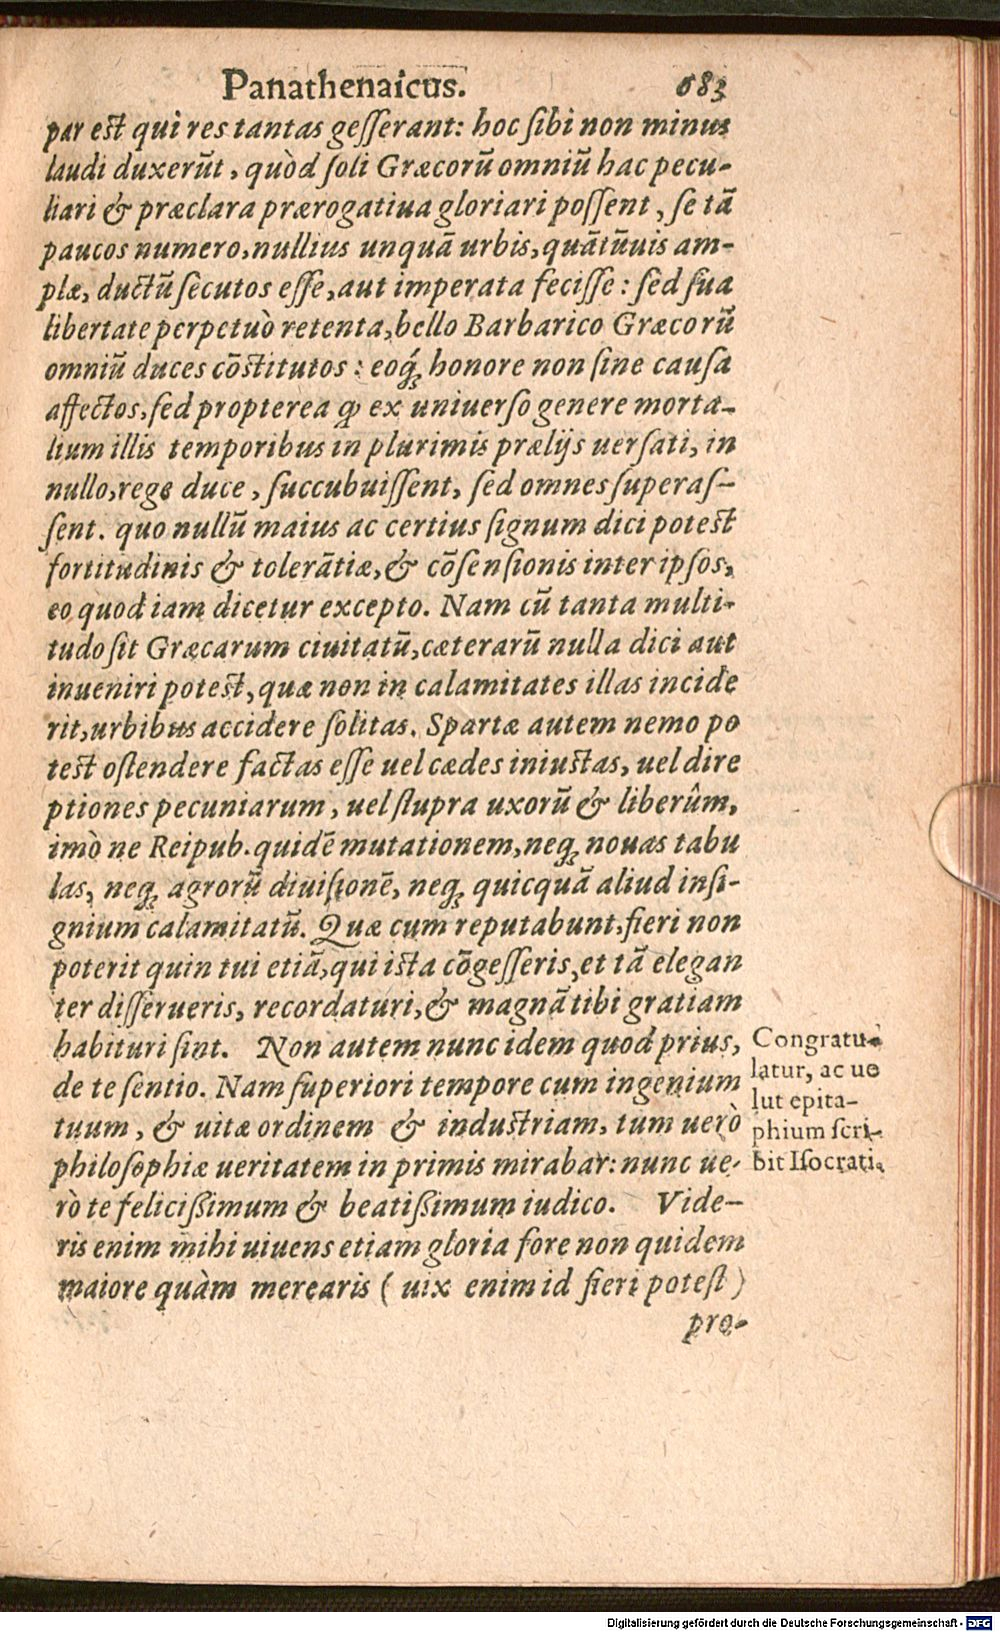 Panathenaicus. 683
par est qui res tantas gesserant: hoc sibi non minus
laudi duxerūt, quòd soli Græcorū omniū hac pecu-
liari & præclara prærogatiua gloriari possent, se tā
paucos numero, nullius unquā urbis, quātūuis am-
plæ, ductū secutos esse, aut imperata fecisse: sed sua
libertate perpetuò retenta, bello Barbarico Græcorū
omniū duces cōstitutos: eoq́ꝫ honore non sine causa
affectos, sed propterea ꝙ ex uniuerso genere morta-
lium illis temporibus in plurimis prælijs uersati, in
nullo, rege duce, succubuissent, sed omnes superas-
sent. quo nullū maius ac certius signum dici potest
fortitudinis & tolerātiæ, & cōsensionis inter ipsos,
eo quod iam dicetur excepto. Nam cū tanta multi-
tudo sit Græcarum ciuitatū, cæterarū nulla dici aut
inueniri potest, quæ non in calamitates illas incide
rit, urbibus accidere solitas. Spartæ autem nemo po
test ostendere factas esse uel cædes iniustas, uel dire
ptiones pecuniarum, uel stupra uxorū & liberûm,
imò ne Reipub. quidē mutationem, neqꝫ nouas tabu
las, neqꝫ agrorū diuisionē, neqꝫ quicquā aliud insi-
gnium calamitatū. Quæ cum reputabunt, fieri non
poterit quin tui etiā, qui ista cōgesseris, et tā elegan
ter disserueris, recordaturi, & magnā tibi gratiam
habituri sint. Non autem nunc idem quod prius,
de te sentio. Nam superiori tempore cum ingenium
tuum, & uitæ ordinem & industriam, tum uerò
philosophiæ ueritatem in primis mirabar: nunc ue-
rò te felicißimum & beatißimum iudico. Vide-
ris enim mihi uiuens etiam gloria fore non quidem
maiore quàm merearis (uix enim id fieri potest)
pro-
Congratu-
latur, ac ue
lut epita-
phium scri-
bit Isocrati.
Digitalisierung gefördert durch die Deutsche Forschungsgemeinschaft - DFG